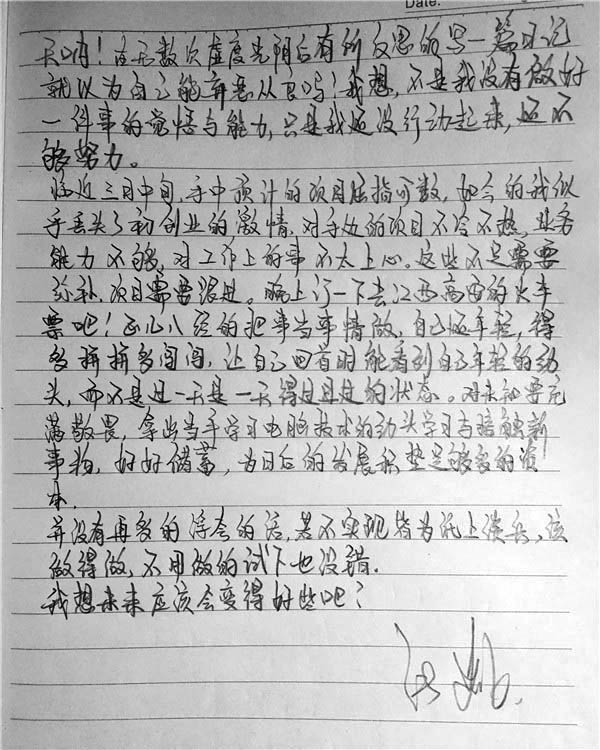 Date:
天呐！在无数次虚度光阴后有所反思的写一篇日记
就以为自己能弃恶从良吗！我想，不是我没有做好
一件事的觉悟与能力，只是我还没行动起来，还不
够努力。
临近三月中旬，手中预计的项目屈指可数，如今的我似
乎丢失了初创业的激情，对手边的项目不冷不热，业务
能力不够，对工作上的事不太上心。这些不足需要
弥补，项目需要跟进。晚上订一下去江西高安的火车
票吧！正儿八经的把事当事情做，自己还年轻，得
多拼拼多闯闯，让自己回首时能看到自己年轻的劲
头，而不是过一天是一天得过且过的状态。对未知要充
满敬畏，拿出当年学习电脑技术的劲头学习与接触新
事物，好好储蓄，为日后的发展积垫足够多的资
本。
并没有再多的浮夸的话，若不实现皆为纸上谈兵，该
做得做，不用做的试下也没错.
我想未来应该会变得好些吧？